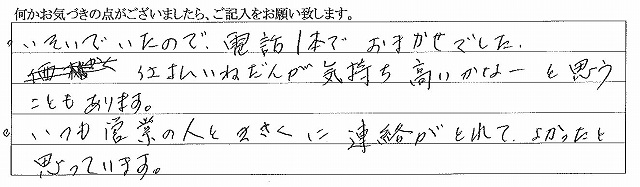 何かお気づきの点がございましたら、ご記入をお願い致します。
いそいでいたので、電話1本でおまかせでした。
仕払いねだんが気持ち高いかなーと思う
こともあります。
いつも営業の人とまさくに連絡がとれて、よかったと
思っています。